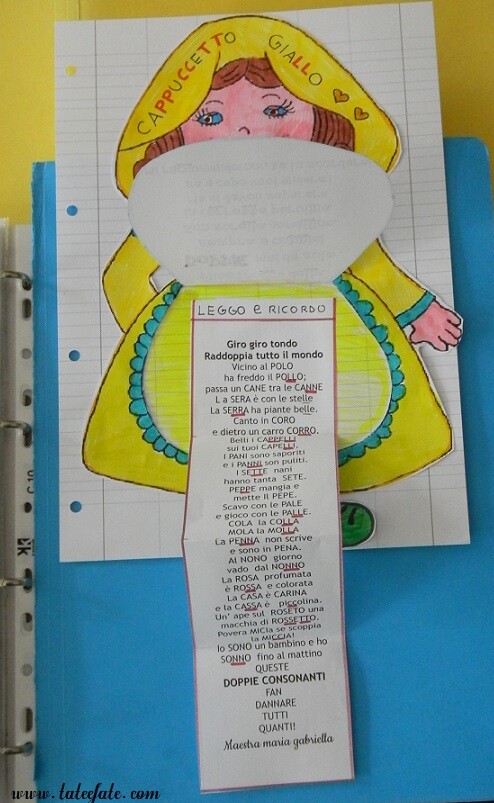 CAPPUCCETTO GIALLO
LEGGO e RICORDO
Giro giro tondo
Raddoppia tutto il mondo
Vicino al POLO
ha freddo il POLLO;
passa un CANE tra le CANNE
L a SERA è con le stelle
La SERRA ha piante belle.
Canto in CORO
e dietro un carro CORRO.
Belli i CAPPELLI
sui tuoi CAPELLI.
I PANI sono saporiti
e i PANNI son puliti.
I SETTE nani
hanno tanta SETE.
PEPPE mangia e
mette il PEPE.
Scavo con le PALE
e gioco con le PALLE.
COLA la COLLA
MOLA la MOLLA
La PENNA non scrive
e sono in PENA.
Al NONO giorno
vado dal NONNO
La ROSA profumata
è ROSSA e colorata
La CASA è CARINA
e la CASSA è piccolina.
Un' ape sul ROSETO una
macchia di ROSSETTO.
Povera MICIa se scoppia
la MICCIA!
Io SONO un bambino e ho
SONNO fino al mattino
QUESTE
DOPPIE CONSONANTI
FAN
DANNARE
TUTTI
QUANTI!
Maestra maria gabriella
www.tateefate.com